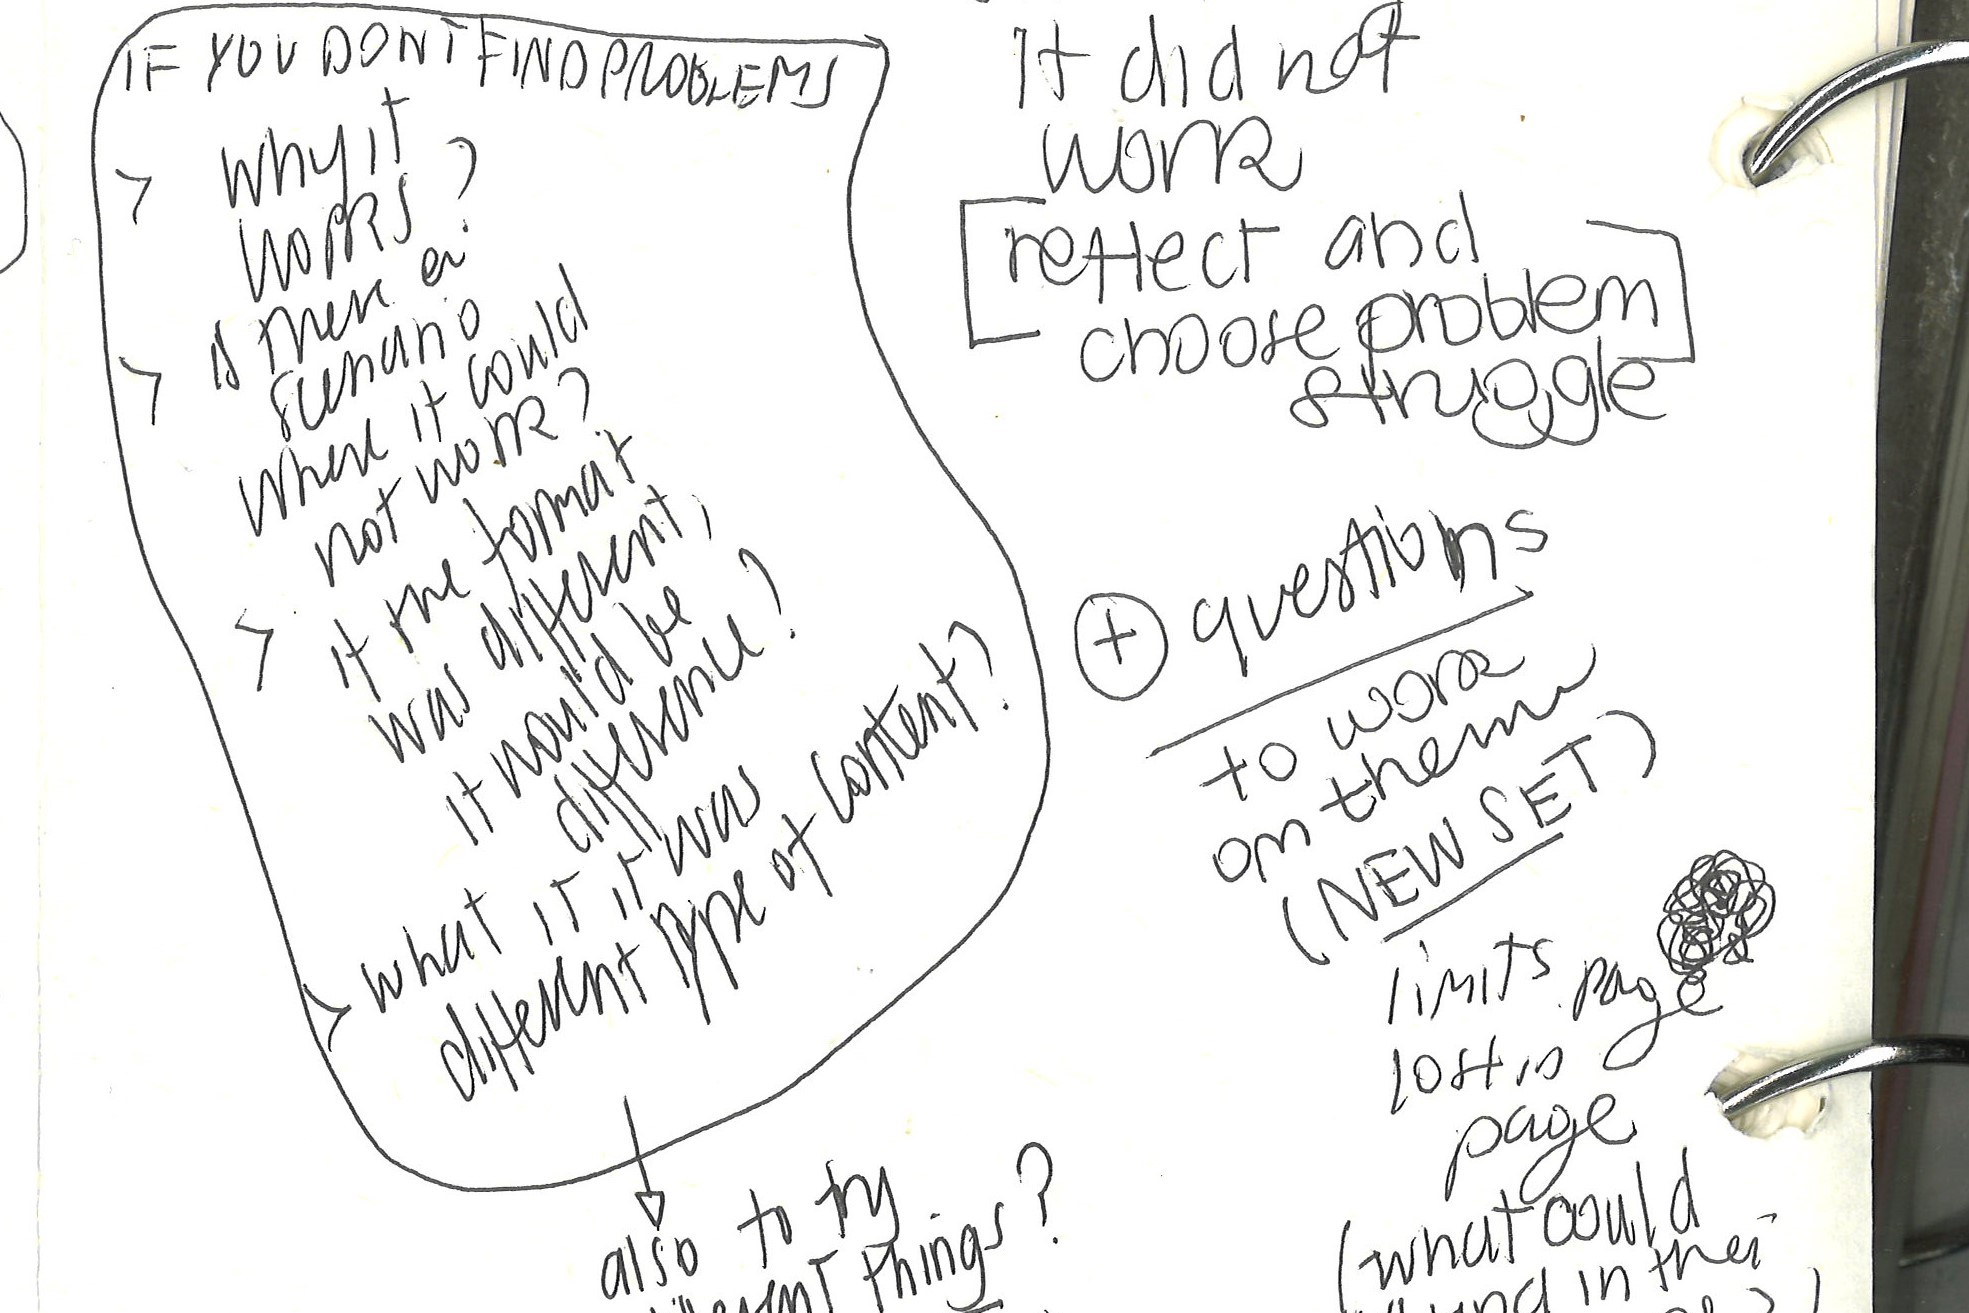 IF YOU DONT FIND PROBLEMS
> why it
works?
> is there a
scenario
where it could
not work?
> if the format
was different,
it would be
difference?
> what if it was
different type of content?
also to try
things?
It did not
work
[reflect and
choose problem]
struggle
+ questions
to work
on them
(NEW SET)
limits page
lost in
page
(what could
in their